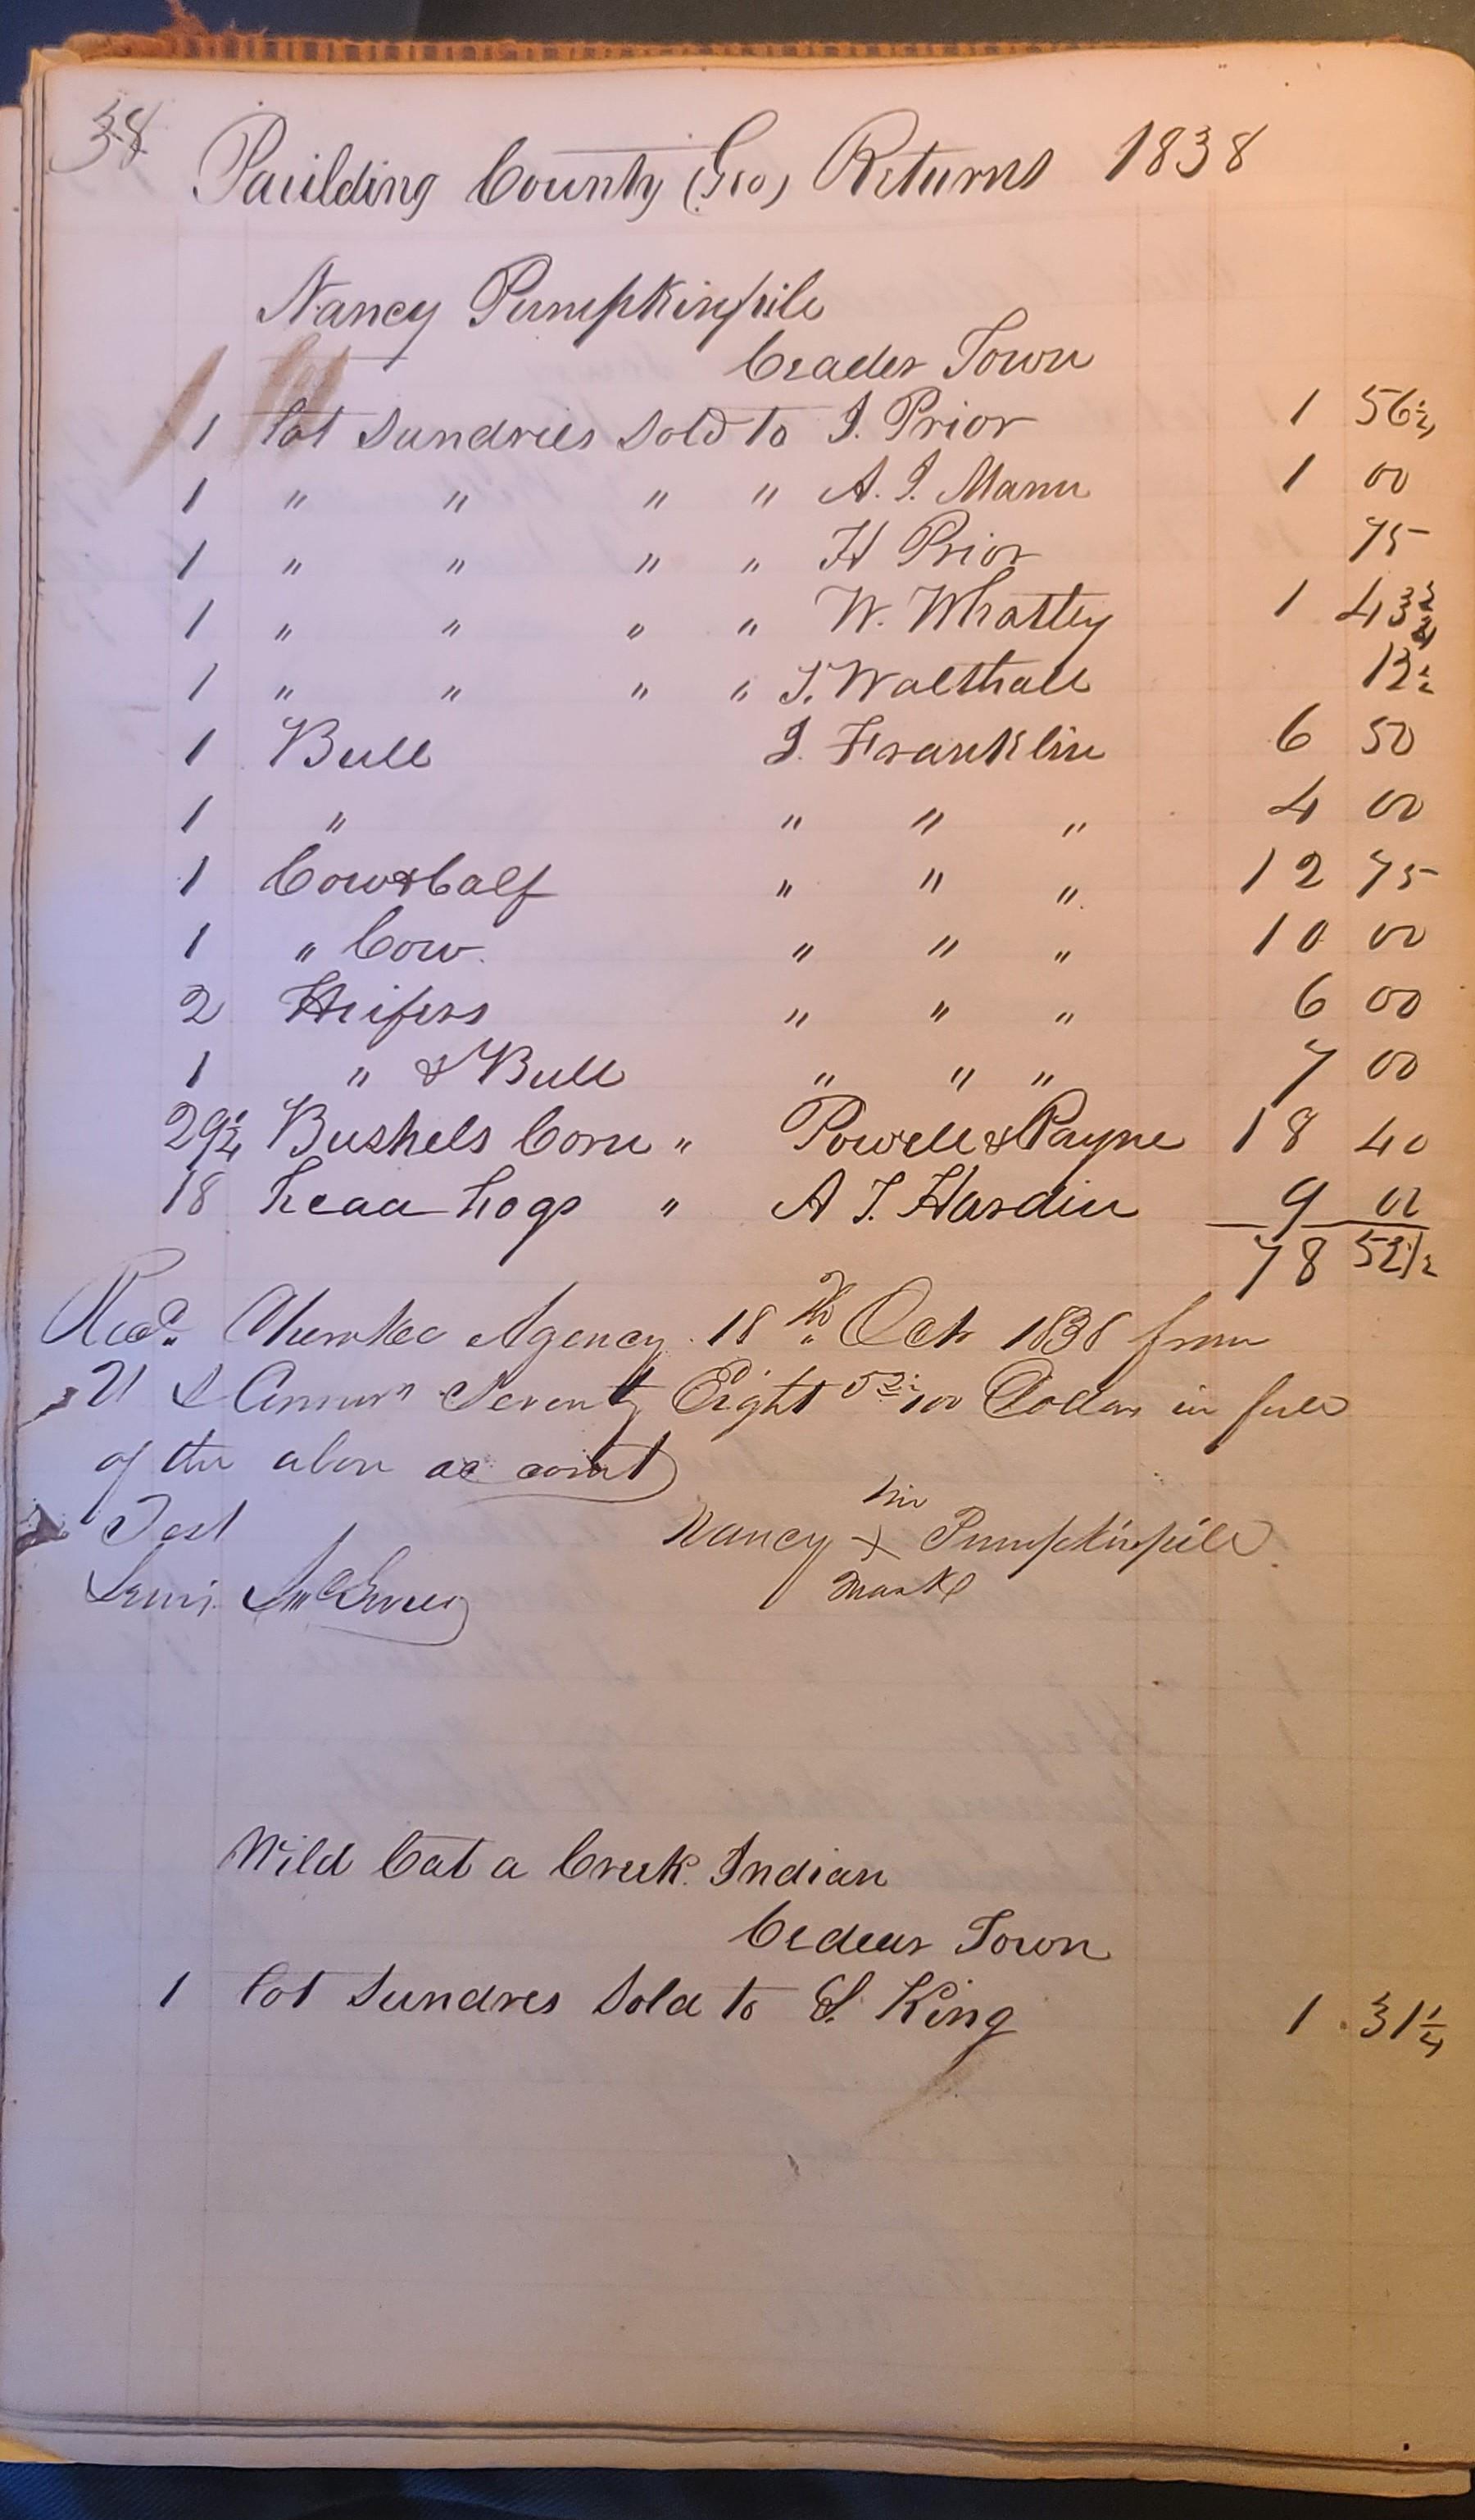 38
Paulding County (Geo) Returns 1838
Nancy Pumpkinpile
Ceader Town
1 lot Sundries Sold to J. Prior 1 56 1/4
1 " " " " A. J. Mann 1 00
1 " " " " H Prior 75
1 " " " " W. Whatley 1 43 3/4
1 " " " " T. Walthall 12 1/2
1 Bull J. Franklin 6 50
1 " " " " 4 00
1 Cow & Calf " " " 12 75
1 " Cow. " " " 10 00
2 Heifers " " " 6 00
1 " & Bull " " " 7 00
29 1/4 Bushels Corn " Powell & Payne 18 40
18 head hogs " A T. Hardin 9 00
78 52 1/2
Recd. Cherokee Agency 18th Oct 1838 from
U S Commrs Seventy Eight 52 1/2/100 Dollars in full
of the above account
Test Nancy + Pumpkinpile
mark
Lewis
Wild Cat a Creek Indian
Cedear Town
1 lot Sundres Sold to S. King 1.31 1/4